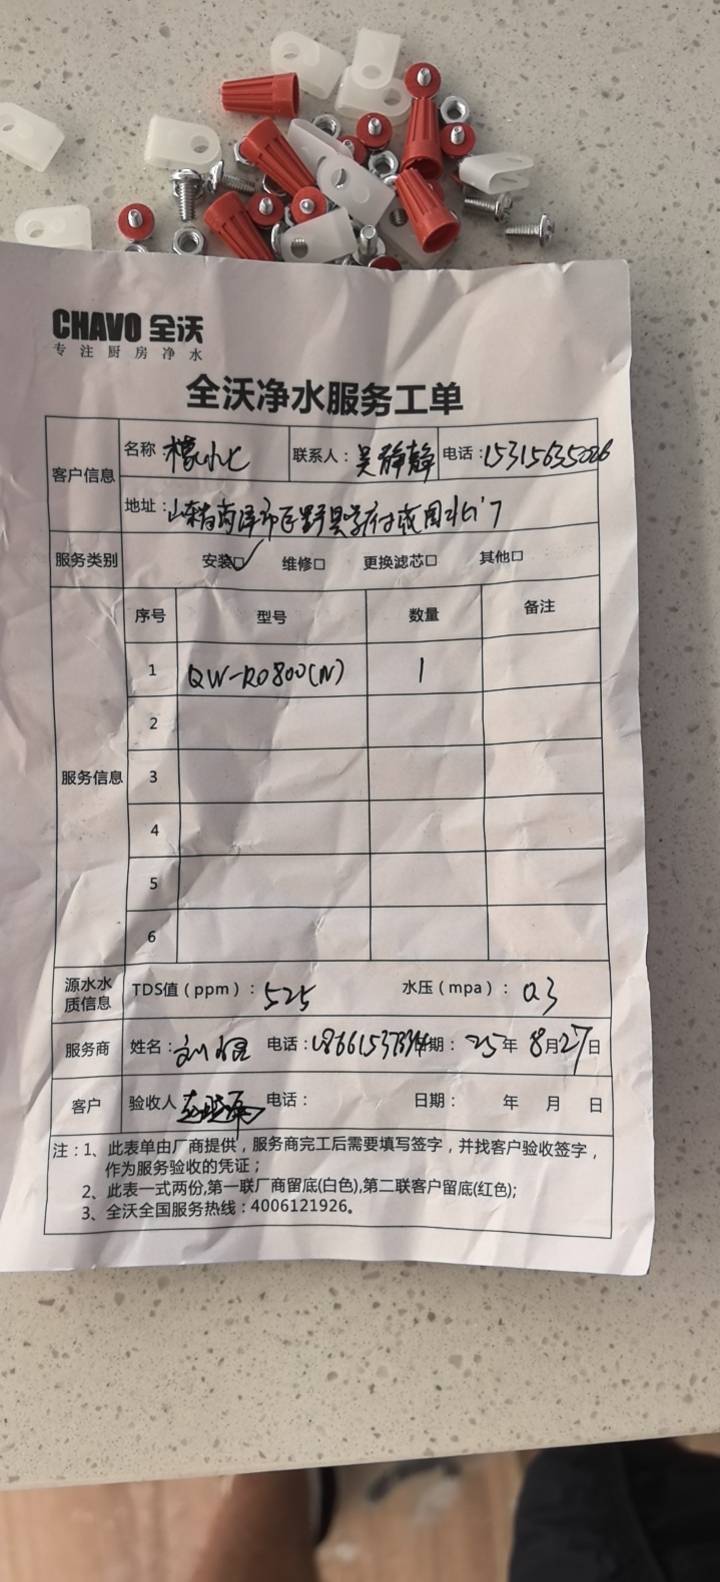 CHAVO 全沃
专注厨房净水
全沃净水服务工单
客户信息
名称 柠檬 联系人：吴静静 电话：15315635026
地址：山东省菏泽市巨野县学府
服务类别 安装☑ 维修□ 更换滤芯□ 其他□
服务信息
序号 型号 数量 备注
1 QW-RO800(N) 1
2
3
4
5
6
源水水质信息 TDS值（ppm）：525 水压（mpa）：0.3
服务商 姓名：刘 电话： 日期：25年 8月27日
客户 验收人 电话： 日期： 年 月 日
注：1、此表单由厂商提供，服务商完工后需要填写签字，并找客户验收签字，
作为服务验收的凭证；
2、此表一式两份,第一联厂商留底(白色),第二联客户留底(红色);
3、全沃全国服务热线：4006121926。